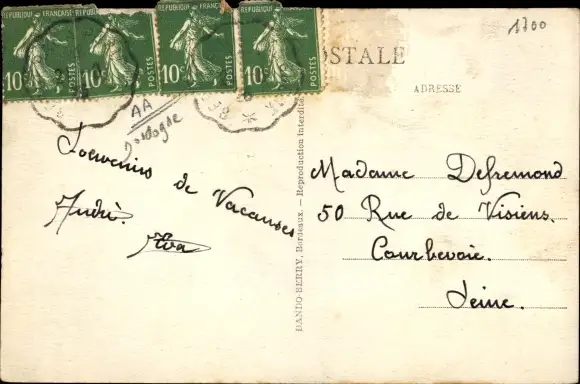 REPUBLIQUE FRANÇAISE REPUBLIQUE FRANÇAISE REPUBLIQUE FRANÇAISE REPUBLIQUE FRANÇAISE
10c POSTES 10c POSTES 10c POSTES 10c POSTES
1700
OSTALE
ADRESSE
AA
Dordogne
Souvenirs de Vacances
André.
Eva
DANDO-BERRY, Bordeaux. — Reproduction interdite
Madame Defremond
50 Rue de Visiens.
Courbevoie.
Seine.